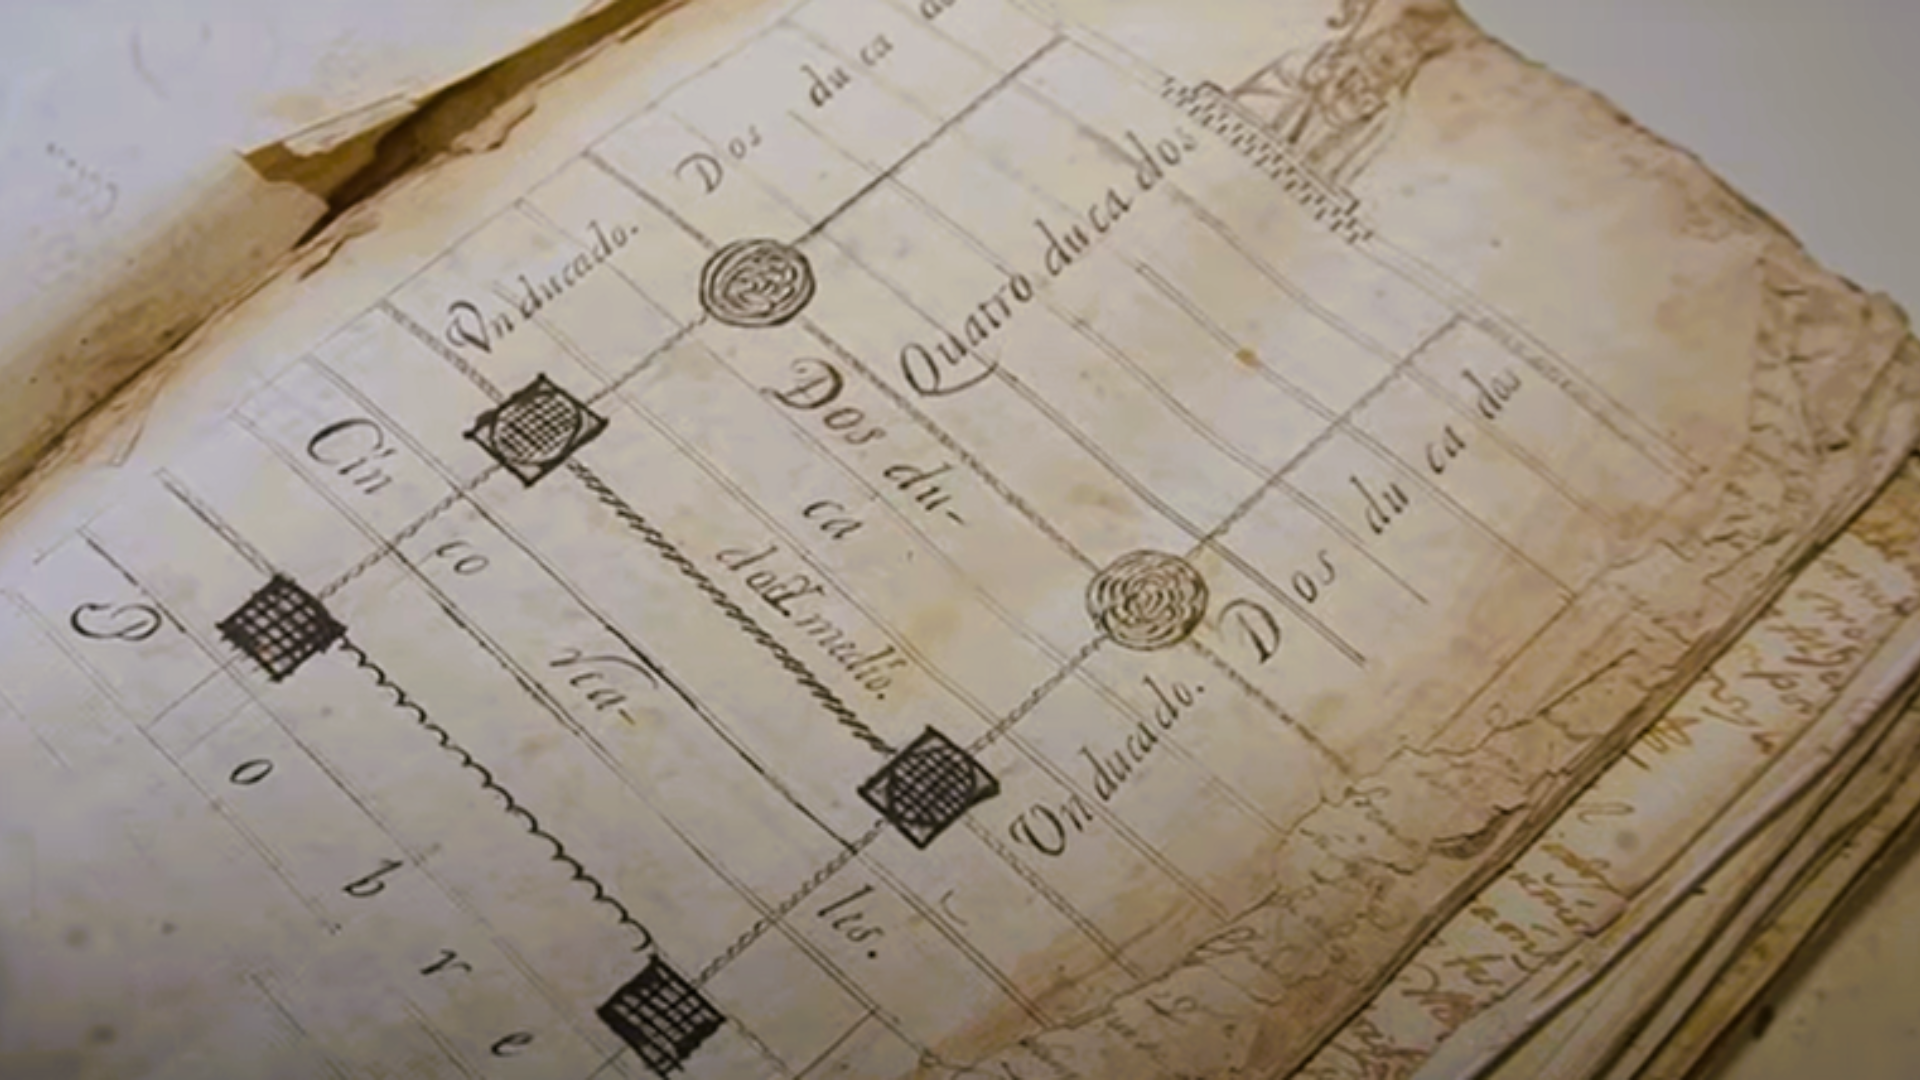 Dos du ca
Quatro ducados
Vn ducado.
Dos du-
ca
dos medio.
Dos du ca dos
Vn ducado.
Cin
co
rea-
les.
P
o
b
r
e